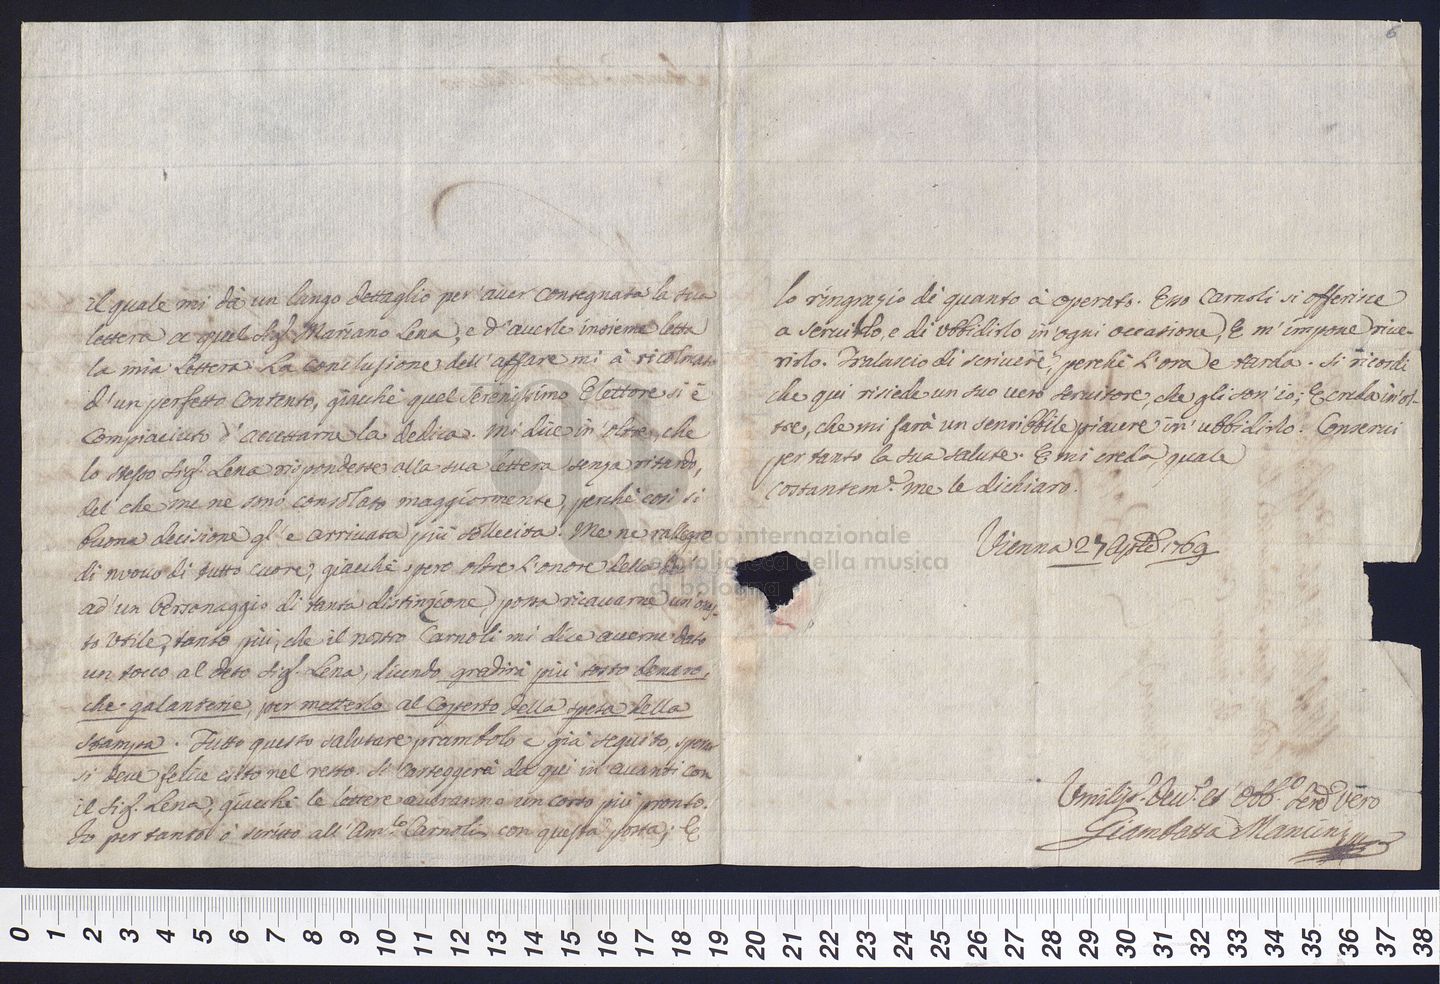 6
il quale mi dà un lungo dettaglio per aver consegnata la sua
lettera a quel Sigr Mariano Lena, e d'averle insieme letta
la mia lettera. La conclusione dell'affare mi à ricolmato
d'un perfetto contento, giacchè quel Serenissimo Elettore si è
compiaciuto d'accettarne la dedica. Mi dice in oltre, che
lo stesso Sigr Lena rispondesse alla sua lettera senza ritardo,
del che me ne sono consolato maggiormente, perchè così si
buona decisione gl'e arrivata più sollecita. Me ne rallegro
di nuovo di tutto cuore, giacchè spero oltre l'onore della
ad'un Personaggio di tanta distinzione, possa ricavarne un ones-
to utile, tanto più, che il nostro Carnoli mi dice averne dato
un tocco al deto Sigr Lena, dicendo gradirà più tosto denaro,
che galanterie, per metterlo al coperto della spesa della
stampa. Tutto questo salutare preambolo e già seguito, sperar
si deve felice esito nel resto. Si corteggerà da qui in avanti con
il Sigr Lena, giacchè le lettere averanno un corso più pronto.
Io per tanto ò scritto all'Amco Carnoli con questa posta, E
lo ringrazio dè quanto à operato. Esso Carnoli si offerisce
a servirlo, e di ubbidirlo in'ogni occasione, E m'impone rive-
rirlo. Tralascio di scrivere, perchè l'ora e tarda. Si ricordi
che qui risiede un suo vero servitore, che gli son'io; E creda in'ol-
tre, che mi sarà un sensibbile piacere in'ubbidirlo. Conservi
per tanto la sua salute. E mi creda, quale
costantemte me le dichiaro.
Vienna 27 Aprle 1769
Umilissmo Devmo ed Obbmo Serdre Vero
Giambatta Mancini
museo internazionale
e biblioteca della musica
di bologna
0 1 2 3 4 5 6 7 8 9 10 11 12 13 14 15 16 17 18 19 20 21 22 23 24 25 26 27 28 29 30 31 32 33 34 35 36 37 38